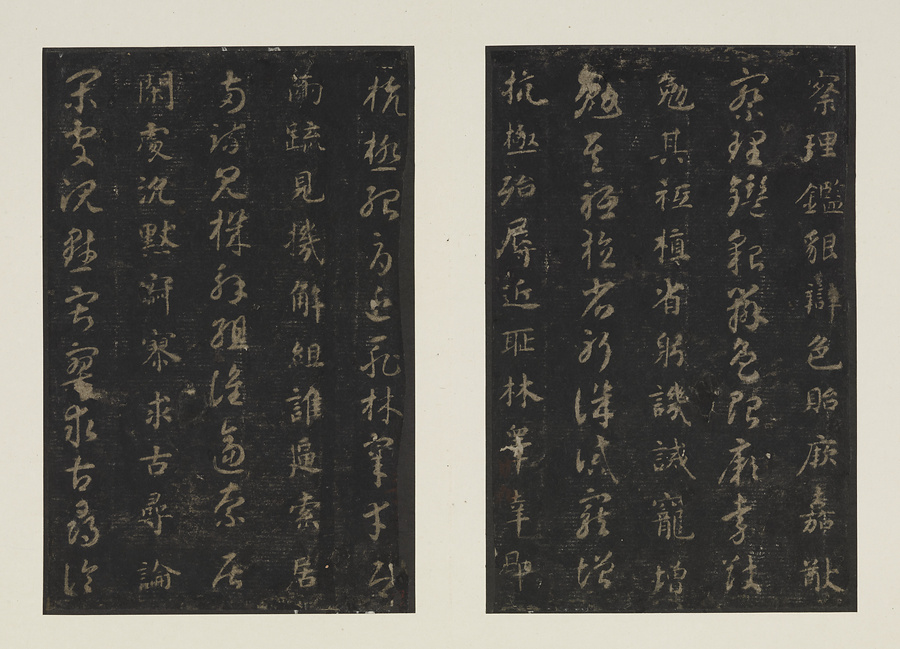 察理鑑貌辯色貽厥嘉猷
察理鑑貌辯色貽厥嘉猷
勉其祗植省躬譏誡寵增
勉其祗植省躬譏誡寵增
抗極殆辱近恥林皋幸即
抗極殆辱近恥林皋幸即
兩疏見機解組誰逼索居
兩疏見機解組誰逼索居
閑處沉默寂寥求古尋論
閑處沉默寂寥求古尋論